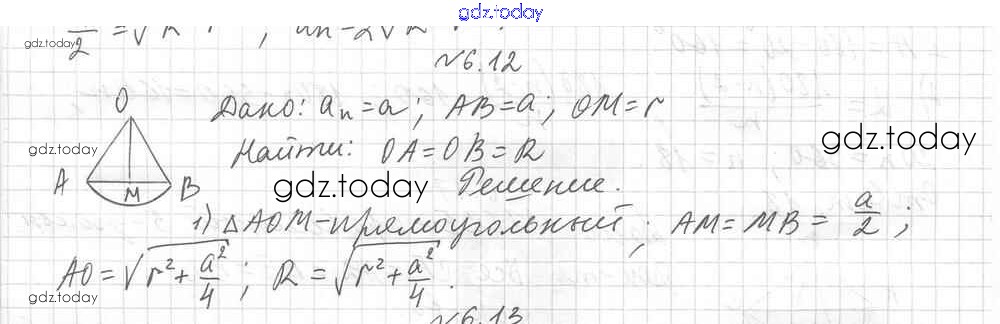 gdz.today
gdz.today
№6.12
O
Дано: aₙ = a; AB = a; OM = r
gdz.today
gdz.today
Найти: OA = OB = R
A M B
gdz.today
Решение.
1) △AOM - прямоугольный; AM = MB = a/2;
AO = √(r² + a²/4); R = √(r² + a²/4).
gdz.today
№6.13